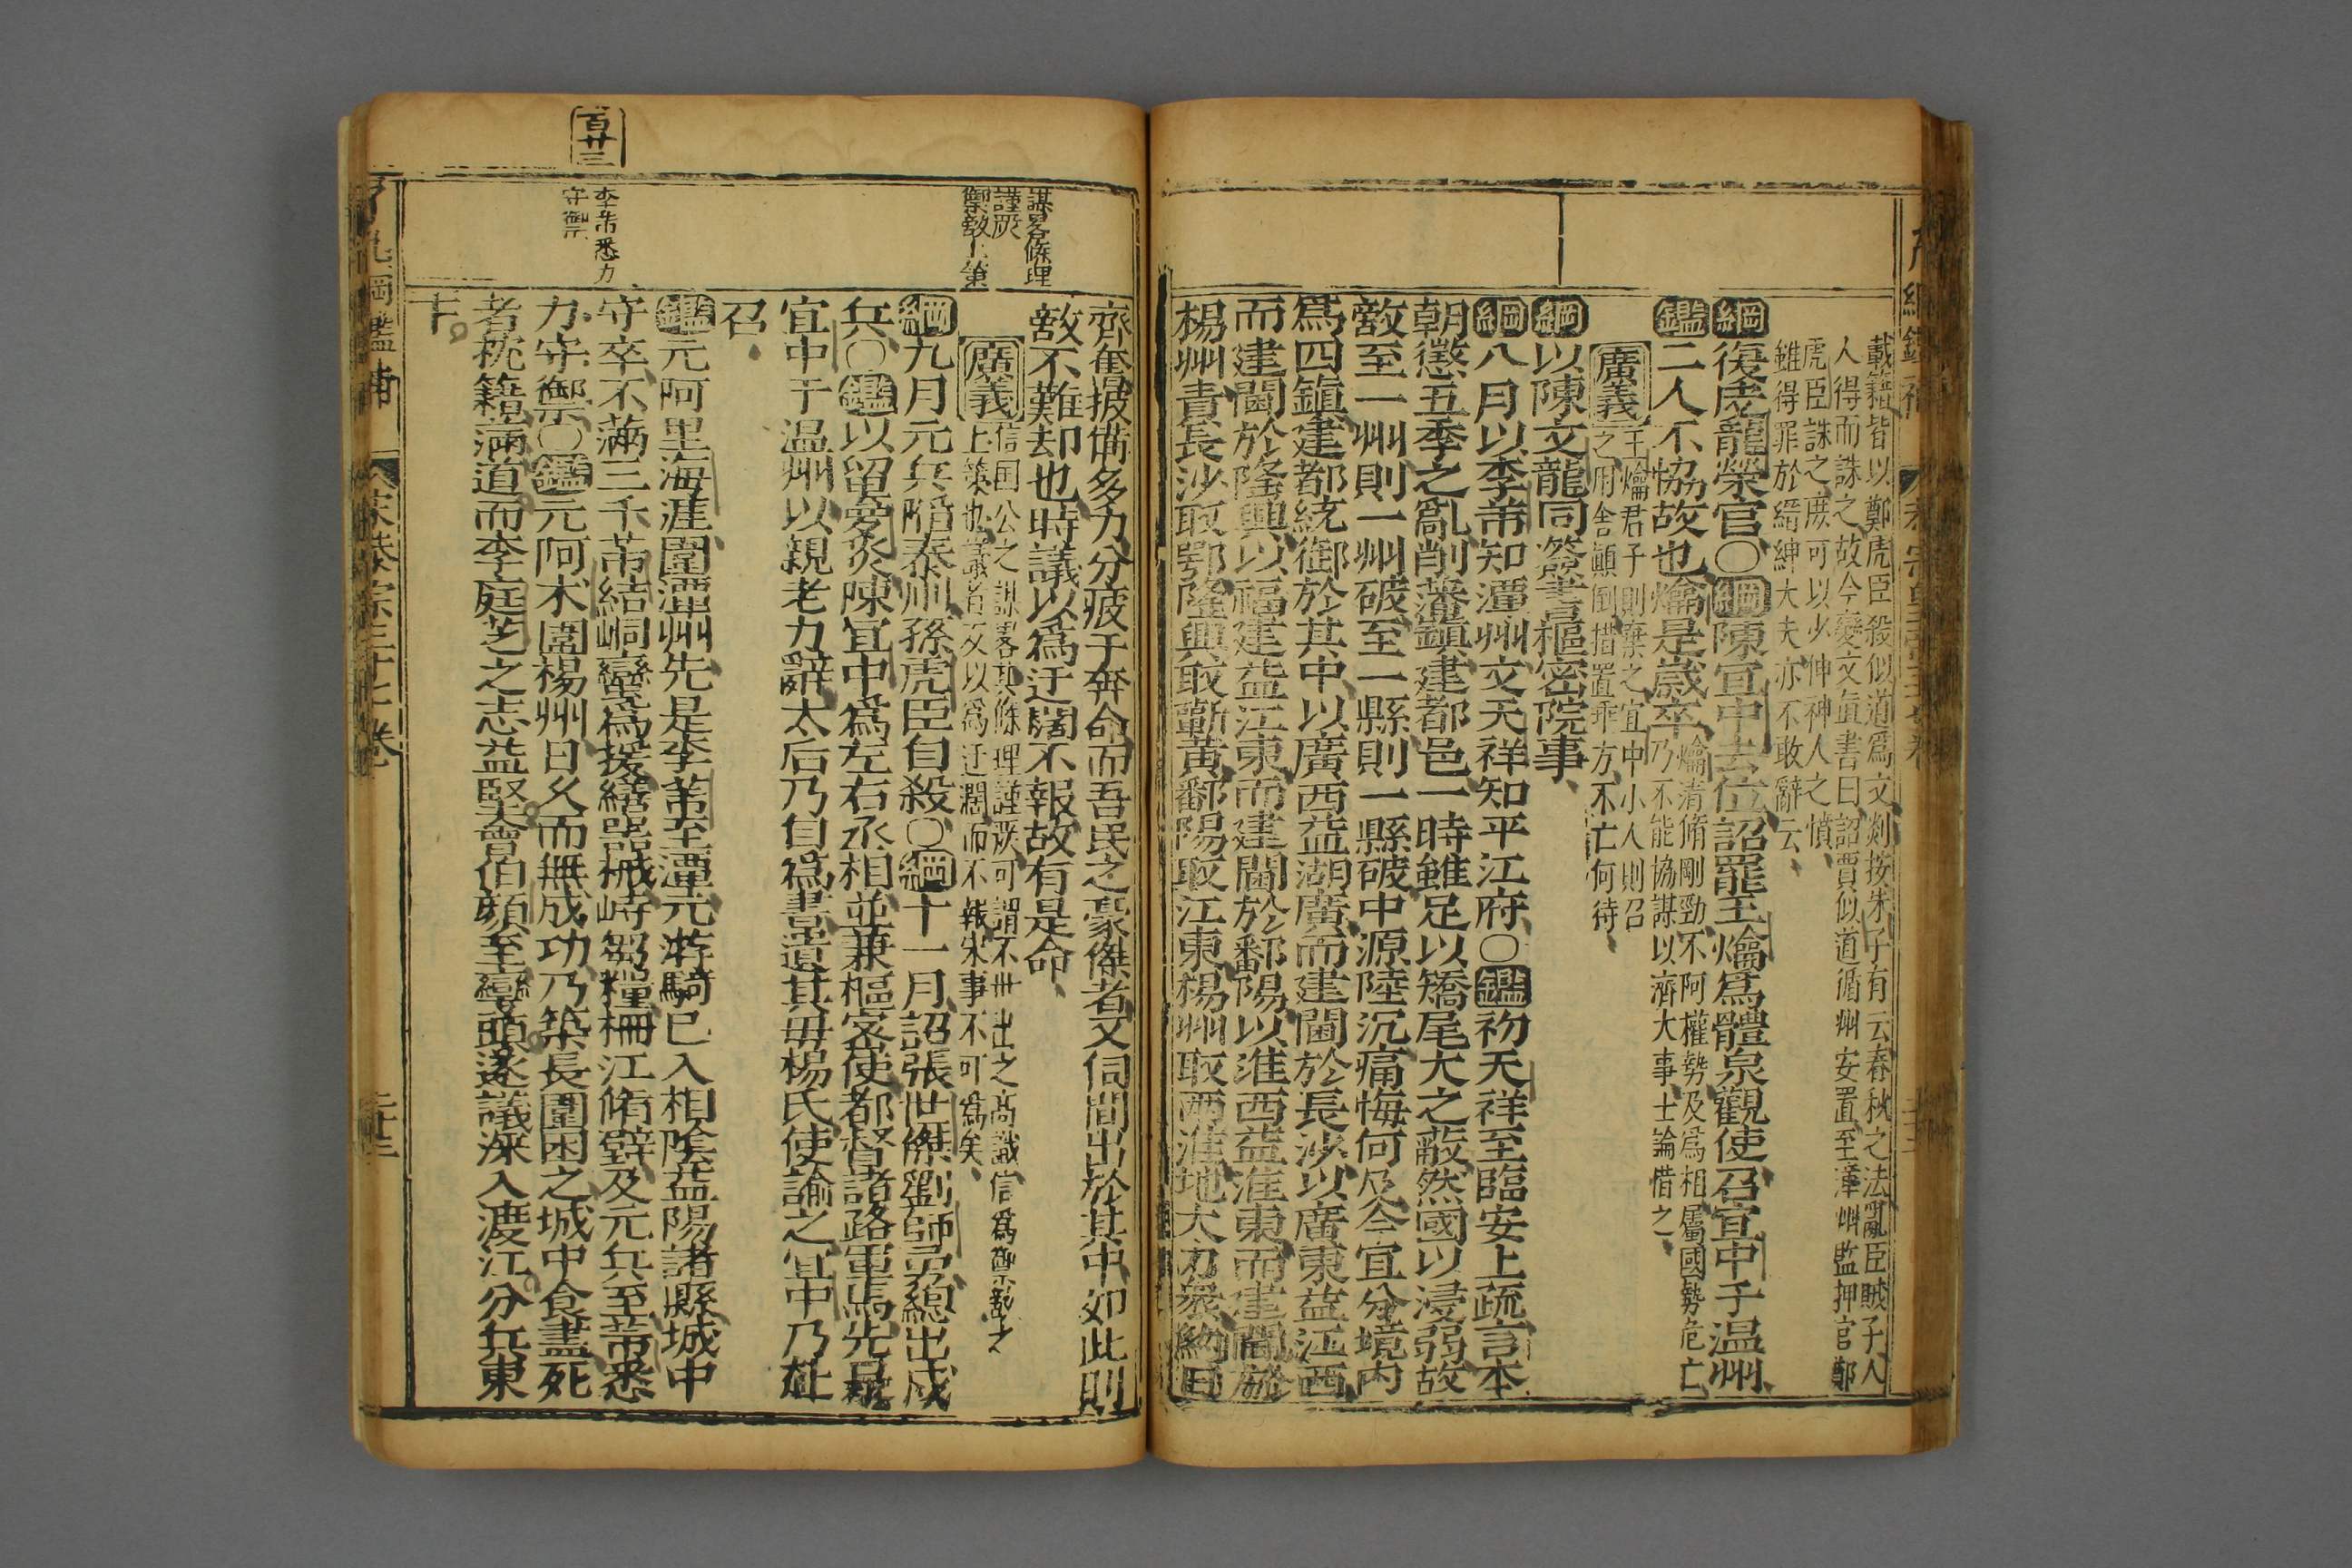 載籍皆以鄭虎臣殺似道爲文剡按朱子有云春秋之法亂臣賊子人
人得而誅之故今變文直書曰詔賈似道循州安置至漳州監押官鄭
虎臣誅之庶可以少伸神人之憤
雖得罪於縉紳大夫亦不敢辭云
綱復吳龍榮官〇綱陳宜中去位詔罷王爚爲醴泉觀使召宜中于温州
鑑二人不協故也爚是歲卒
爚清脩剛勁不阿權勢及爲相屬國勢危亡
乃不能協謀以濟大事士論惜之
廣義
王爚君子則棄之宜中小人則召
之用舍顛倒措置乖方不亡何待
綱以陳文龍同簽書樞密院事
綱八月以李芾知潭州文天祥知平江府〇鑑初天祥至臨安上疏言本
朝懲五季之亂削藩鎮建都邑一時雖足以矯尾大之蔽然國以浸弱故
敵至一州則一州破至一縣則一縣破中源陸沉痛悔何及今宜分境内
爲四鎮建都統御於其中以廣西益湖廣而建閫於長沙以廣東益江西
而建閫於隆興以福建益江東而建閫於鄱陽以淮西益淮東而建閫於
楊州責長沙取鄂隆興取蘄黃鄱陽取江東楊州取兩淮地大力衆約日
謀畧條理
謹嚴
禦敵上策
齊奮掇備多力分疲于奔命而吾民之豪傑者又伺間出於其中如此則
敵不難却也時議以爲迂闊不報故有是命
廣義
信国公之謀畧其條理謹嚴可謂不世出之高識信爲禦敵之
上策也議者反以爲迂濶而不報宋事不可爲矣
綱九月元兵陷泰州孫虎臣自殺〇綱十一月詔張世傑劉師勇總出戍
兵〇鑑以留夢炎陳宜中爲左右丞相並兼樞密使都督諸路軍馬先是
宜中于温州以親老力辭太后乃自爲書遺其毋楊氏使諭之宜中乃赴
召
百廿三
李芾悉力
守禦
鑑元阿里海涯圍潭州先是李芾至潭元游騎已入相陰益陽諸縣城中
守卒不滿三千芾結峒蠻爲援繕器械峙芻糧柵江脩壁及元兵至芾悉
力守禦〇鑑元阿术圍楊州日久而無成功乃築長圍困之城中食盡死
者枕籍滿道而李庭芝之志益堅會伯顏至灣頭遂議深入渡江分兵東
下
綱鑑補 宋恭宗三十七卷